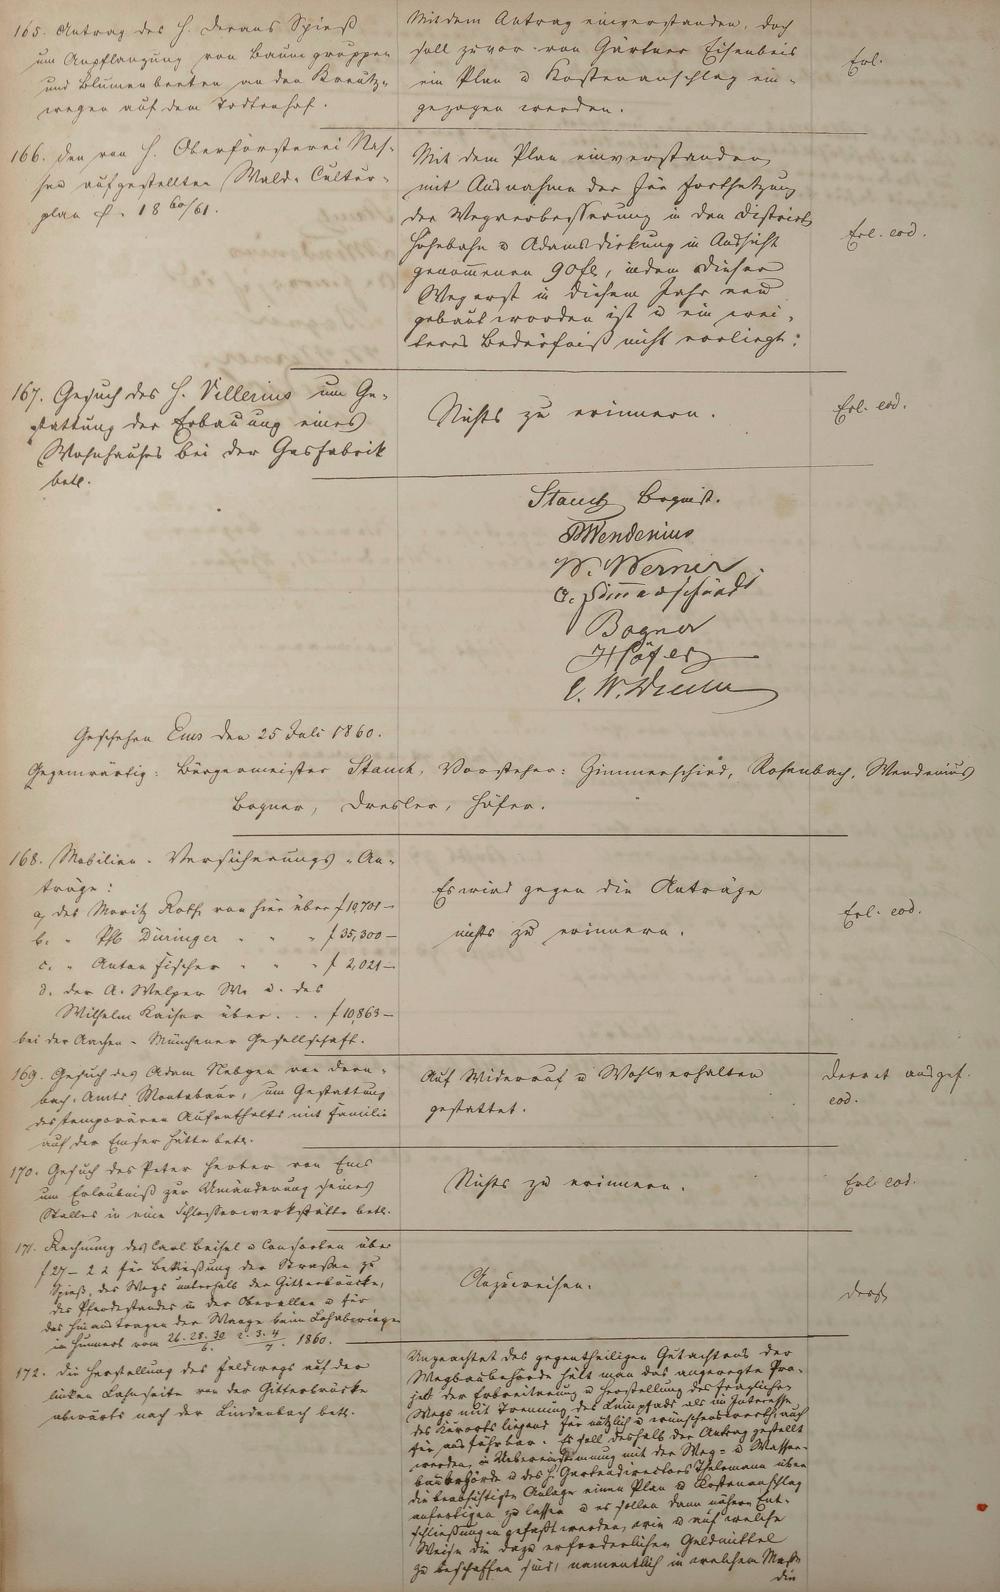 165. Antrag des H. Decans Spieß
um Anpflanzung von Baumgruppen
und Blumenbeeten an den Kreutz-
wegen auf dem Todtenhof.
Mit dem Antrag einverstanden, doch
soll zuvor von Gärtner Eisenbeis
ein Plan u Kostenanschlag ein-
gezogen werden.
Erl.
166. den von H. Oberförsterei Nas-
sau aufgestellten Wald-Cultur-
plan p. 1860/61.
Mit dem Plan einverstanden
mit Ausnahme der für Fortsetzung
der Wegverbesserung in den District
Höhebahn u Adams in Aussicht
genommenen 90 fl, indem dieser
Weg erst in diesem Jahr neu
gebaut worden ist u ein wei-
teres Bedürfniß nicht vorliegt.
Erl. eod.
167. Gesuch des H. Villerius um Ge-
stattung der Erbauung eines
Wohnhauses bei der Gasfabrik
betr.
Nichts zu erinnern.
Erl. eod.
Stauch Bgmst.
Wendenius
W. Werner
C. Zimmerschied
Bogner
H Höfer
Geschehen Ems den 25 Juli 1860.
Gegenwärtig: Bürgermeister Stauch, Vorsteher: Zimmerschied, Rosenbach, Wendenius
Bogner, Dresler, Höfer.
168. Mobilien-Versicherungs-An-
träge:
a, des Moritz Roth von hier über f 10,701 –
b. " Ph Düringer " " " f 35,300 –
c. " Anton Fischer " " " f 2,021 –
d. der A. Welper We u. des
Wilhelm Kaiser über . . . f 10,863 –
bei der Aachen-Münchener Gesellschaft.
Es wird gegen die Anträge
nichts zu erinnern.
Erl. eod.
169. Gesuch des Adam Nebgen von Dern-
bach, Amts Montabaur, um Gestattung
des temporären Aufenthalts mit Familie
auf der Emser Hütte betr.
Auf Widerruf u Wohlverhalten
gestattet.
Decret ausgef.
eod.
170. Gesuch des Peter Herber von Ems
um Erlaubniß zur Umänderung seines
Stalles in eine Schlosserwerkstätte betr.
Nichts zu erinnern.
Erl eod.
171. Rechnung des Carl Beisel u Consorten über
f 27 – 22 für Bekießung der Straßen zu
Spieß, des Wegs unterhalb der Gitterbrücke,
des Pferdestandes in der Oberallee u für
das Hinaustragen der Waage beim
im vom 26. 28. 30/6. 2. 3. 4/7. 1860.
Anzuweisen.
172. die Herstellung des Feldwegs auf der
linken Lahnseite von der Gitterbrücke
abwärts nach der Lindenbach betr.
Ungeachtet des gegentheiligen Gutachtens der
Wegbaubehörde hält man das angeregte Pro-
jekt der Erbreiterung u Herstellung des fraglichen
Wegs mit Trennung des Leinpfads als im Interesse
des Kurorts liegend für nützlich u wünschenswerth auch
für ausführbar. Es soll deshalb der Antrag gestellt
werden, in Uebereinstimmung mit der Weg- u Wasser-
baubehörde u des H. Gartendirectors Thelemann über
die beabsichtigte Anlage einen Plan u Kostenanschlag
anfertigen zu lassen u es sollen dann nähere Ent-
schließungen gefaßt werden, wie u auf welche
Weise die dazu erforderlichen Geldmittel
zu beschaffen sind, namentlich in welchem Maße
die